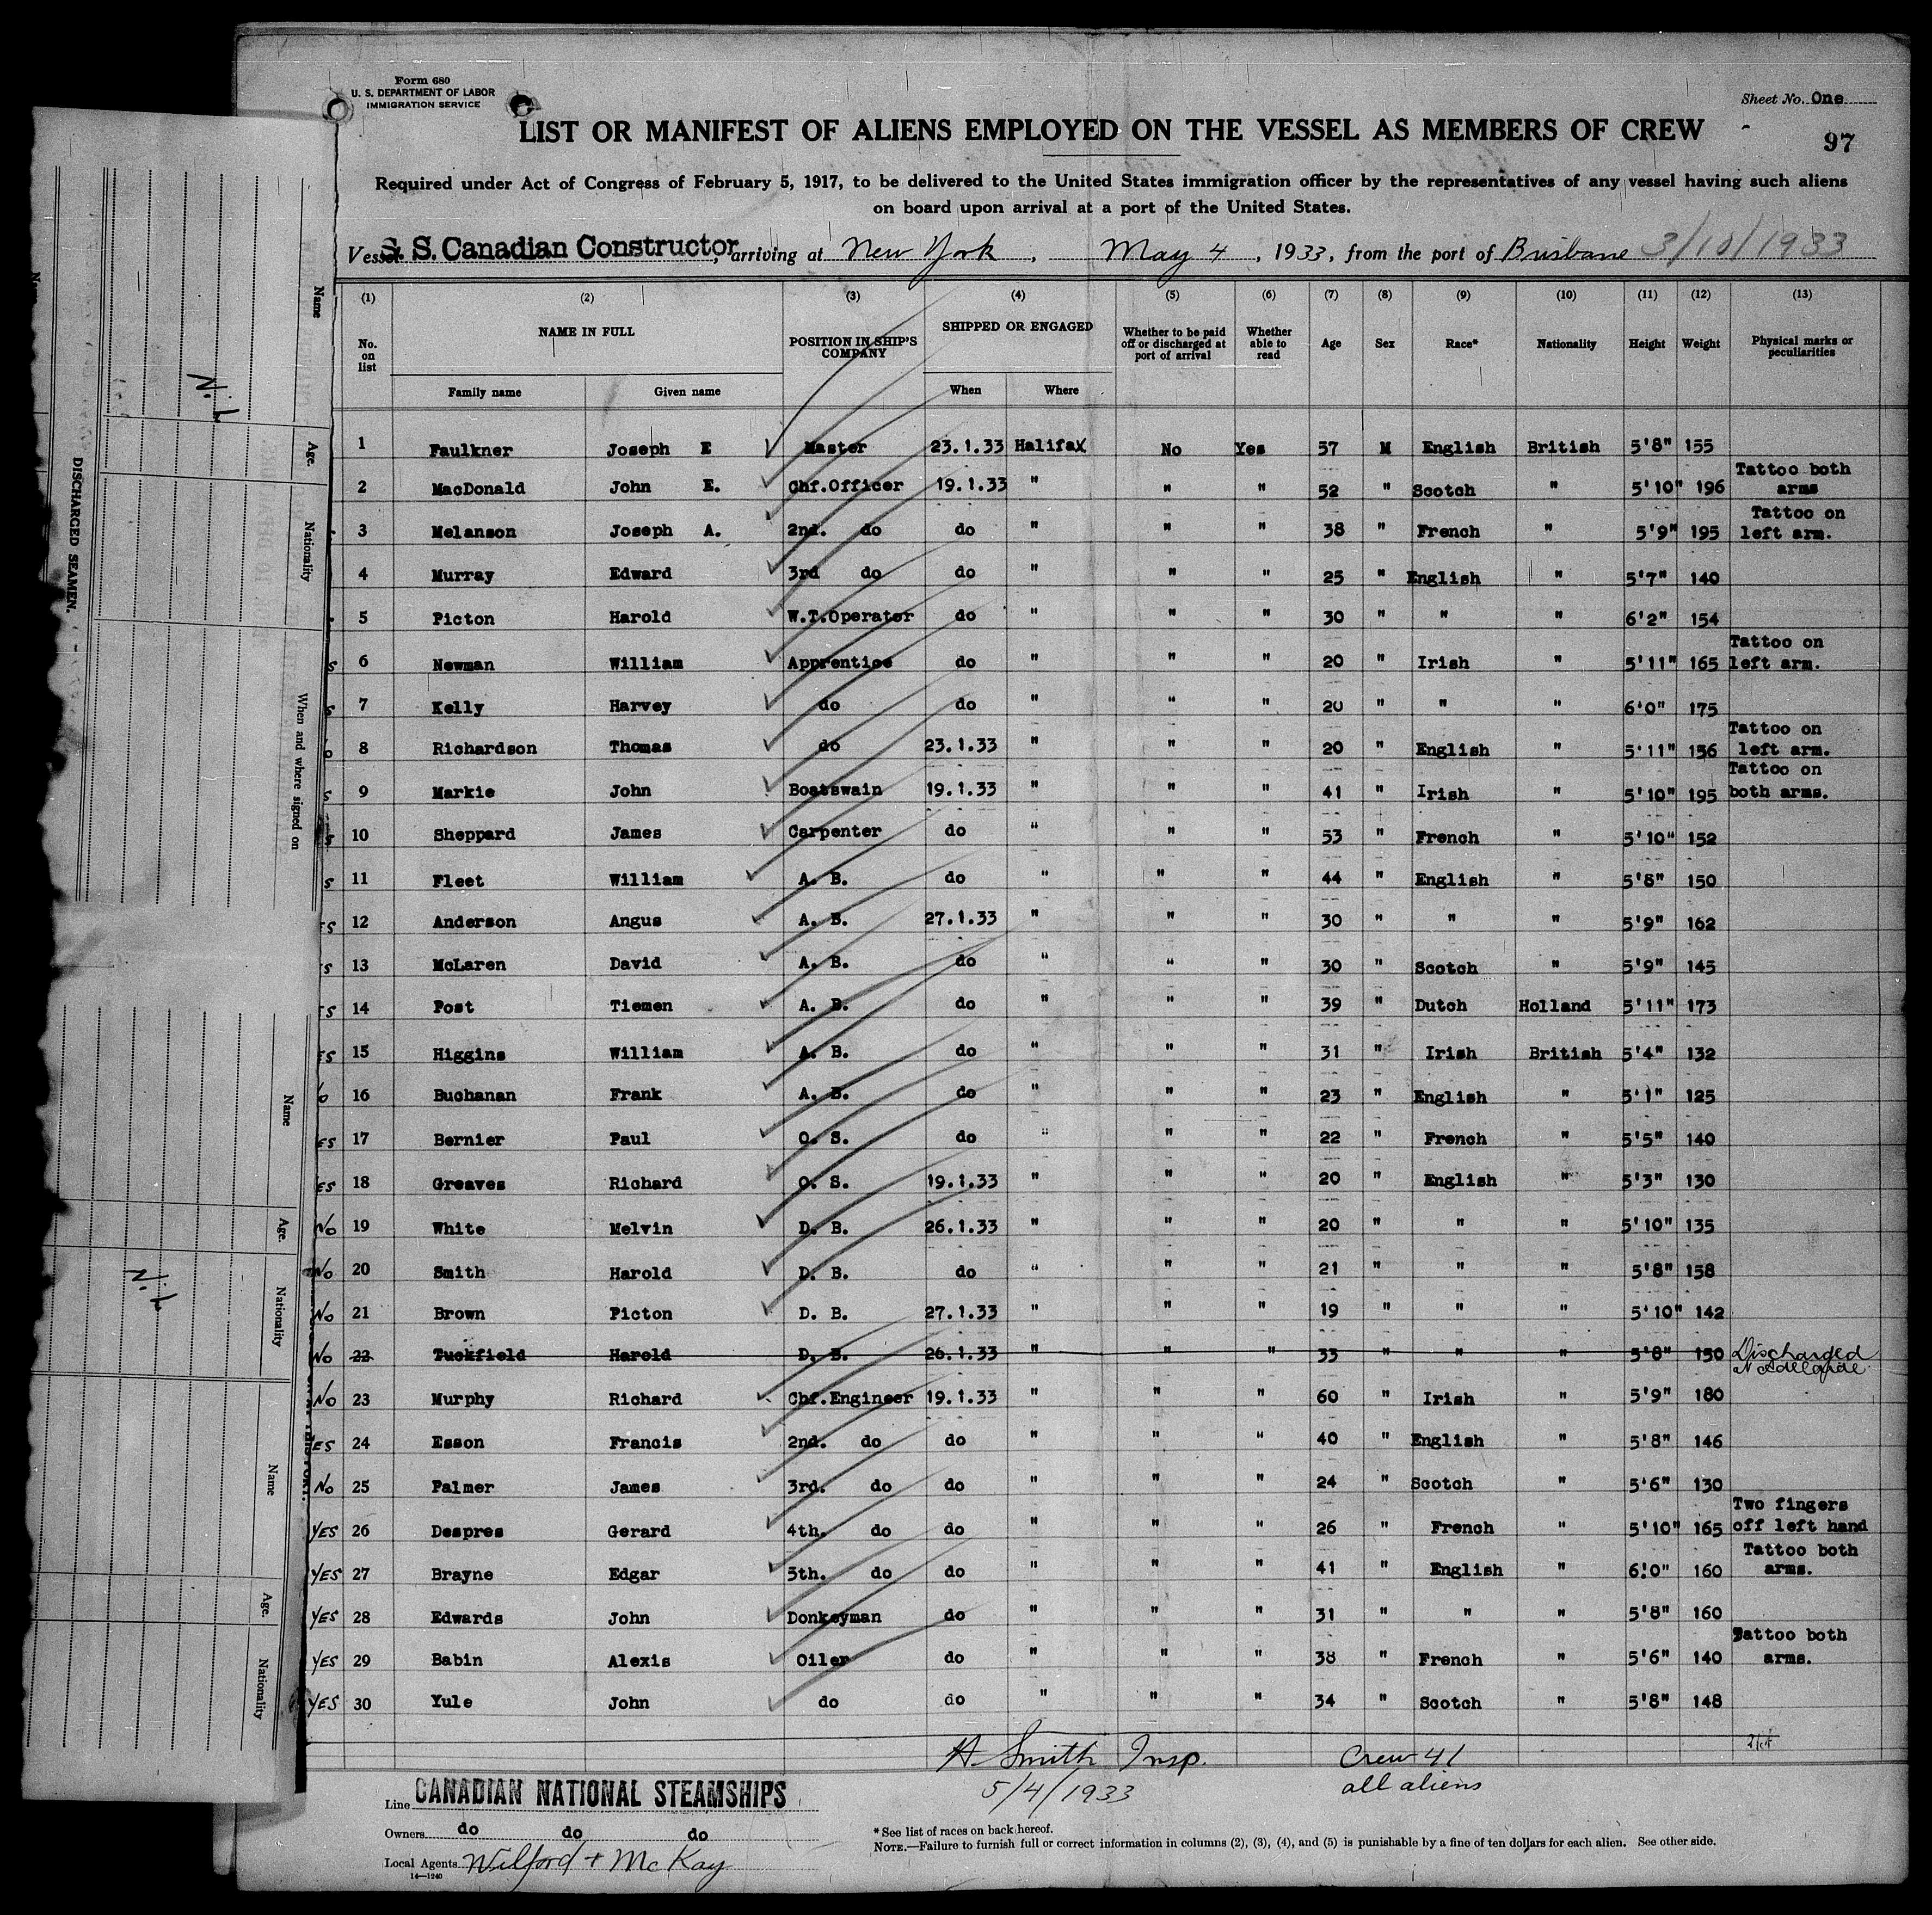 Form 680
U. S. DEPARTMENT OF LABOR
IMMIGRATION SERVICE
Sheet No. One
LIST OR MANIFEST OF ALIENS EMPLOYED ON THE VESSEL AS MEMBERS OF CREW
97
Required under Act of Congress of February 5, 1917, to be delivered to the United States immigration officer by the representatives of any vessel having such aliens
on board upon arrival at a port of the United States.
Vessel S. S. Canadian Constructor, arriving at New York, May 4, 1933, from the port of Brisbane 3/10/1933
(1) (2) (3) (4) (5) (6) (7) (8) (9) (10) (11) (12) (13)
No. on list NAME IN FULL POSITION IN SHIP'S COMPANY SHIPPED OR ENGAGED Whether to be paid off or discharged at port of arrival Whether able to read Age Sex Race* Nationality Height Weight Physical marks or peculiarities
Family name Given name When Where
1 Faulkner Joseph E Master 23.1.33 Halifax No Yes 57 M English British 5'8" 155
2 MacDonald John E. Chf.Officer 19.1.33 " " " 52 " Scotch " 5'10" 196 Tattoo both arms
3 Melanson Joseph A. 2nd. do do " " " 38 " French " 5'9" 195 Tattoo on left arm.
4 Murray Edward 3rd do do " " " 25 " English " 5'7" 140
5 Picton Harold W.T.Operator do " " " 30 " " " 6'2" 154
6 Newman William Apprentice do " " " 20 " Irish " 5'11" 165 Tattoo on left arm.
7 Kelly Harvey do do " " " 20 " " " 6'0" 175
8 Richardson Thomas do 23.1.33 " " " 20 " English " 5'11" 156 Tattoo on left arm.
9 Markie John Boatswain 19.1.33 " " " 41 " Irish " 5'10" 195 Tattoo on both arms.
10 Sheppard James Carpenter do " " " 53 " French " 5'10" 152
11 Fleet William A. B. do " " " 44 " English " 5'8" 150
12 Anderson Angus A. B. 27.1.33 " " " 30 " " " 5'9" 162
13 McLaren David A. B. do " " " 30 " Scotch " 5'9" 145
14 Post Tiemen A. B. do " " " 39 " Dutch Holland 5'11" 173
15 Higgins William A. B. do " " " 31 " Irish British 5'4" 132
16 Buchanan Frank A. B. do " " " 23 " English " 5'1" 125
17 Bernier Paul O. S. do " " " 22 " French " 5'5" 140
18 Greaves Richard O. S. 19.1.33 " " " 20 " English " 5'3" 130
No 19 White Melvin D. B. 26.1.33 " " " 20 " " " 5'10" 135
No 20 Smith Harold D. B. do " " " 21 " " " 5'8" 158
No 21 Brown Picton D. B. 27.1.33 " " " 19 " " " 5'10" 142
No 22 Tuckfield Harold D. B. 26.1.33 " " " 33 " " " 5'8" 150 Discharged at Adelaide
No 23 Murphy Richard Chf.Engineer 19.1.33 " " " 60 " Irish " 5'9" 180
24 Esson Francis 2nd. do do " " " 40 " English " 5'8" 146
No 25 Palmer James 3rd. do do " " " 24 " Scotch " 5'6" 130
YES 26 Despres Gerard 4th. do do " " " 26 " French " 5'10" 165 Two fingers off left hand
YES 27 Brayne Edgar 5th. do do " " " 41 " English " 6'0" 160 Tattoo both arms.
YES 28 Edwards John Donkeyman do " " " 31 " " " 5'8" 160
YES 29 Babin Alexis Oiler do " " " 38 " French " 5'6" 140 Tattoo both arms.
YES 30 Yule John do do " " " 34 " Scotch " 5'8" 148
H Smith Insp. Crew 41
5/4/1933 all aliens
Line CANADIAN NATIONAL STEAMSHIPS
Owners do do do
Local Agents Wilford + McKay
14—1240
* See list of races on back hereof.
NOTE.—Failure to furnish full or correct information in columns (2), (3), (4), and (5) is punishable by a fine of ten dollars for each alien. See other side.
DISCHARGED SEAMEN.
Name Age. Nationality When and where signed on
Nil
Name Age. Nationality
Nil
Name Age. Nationality